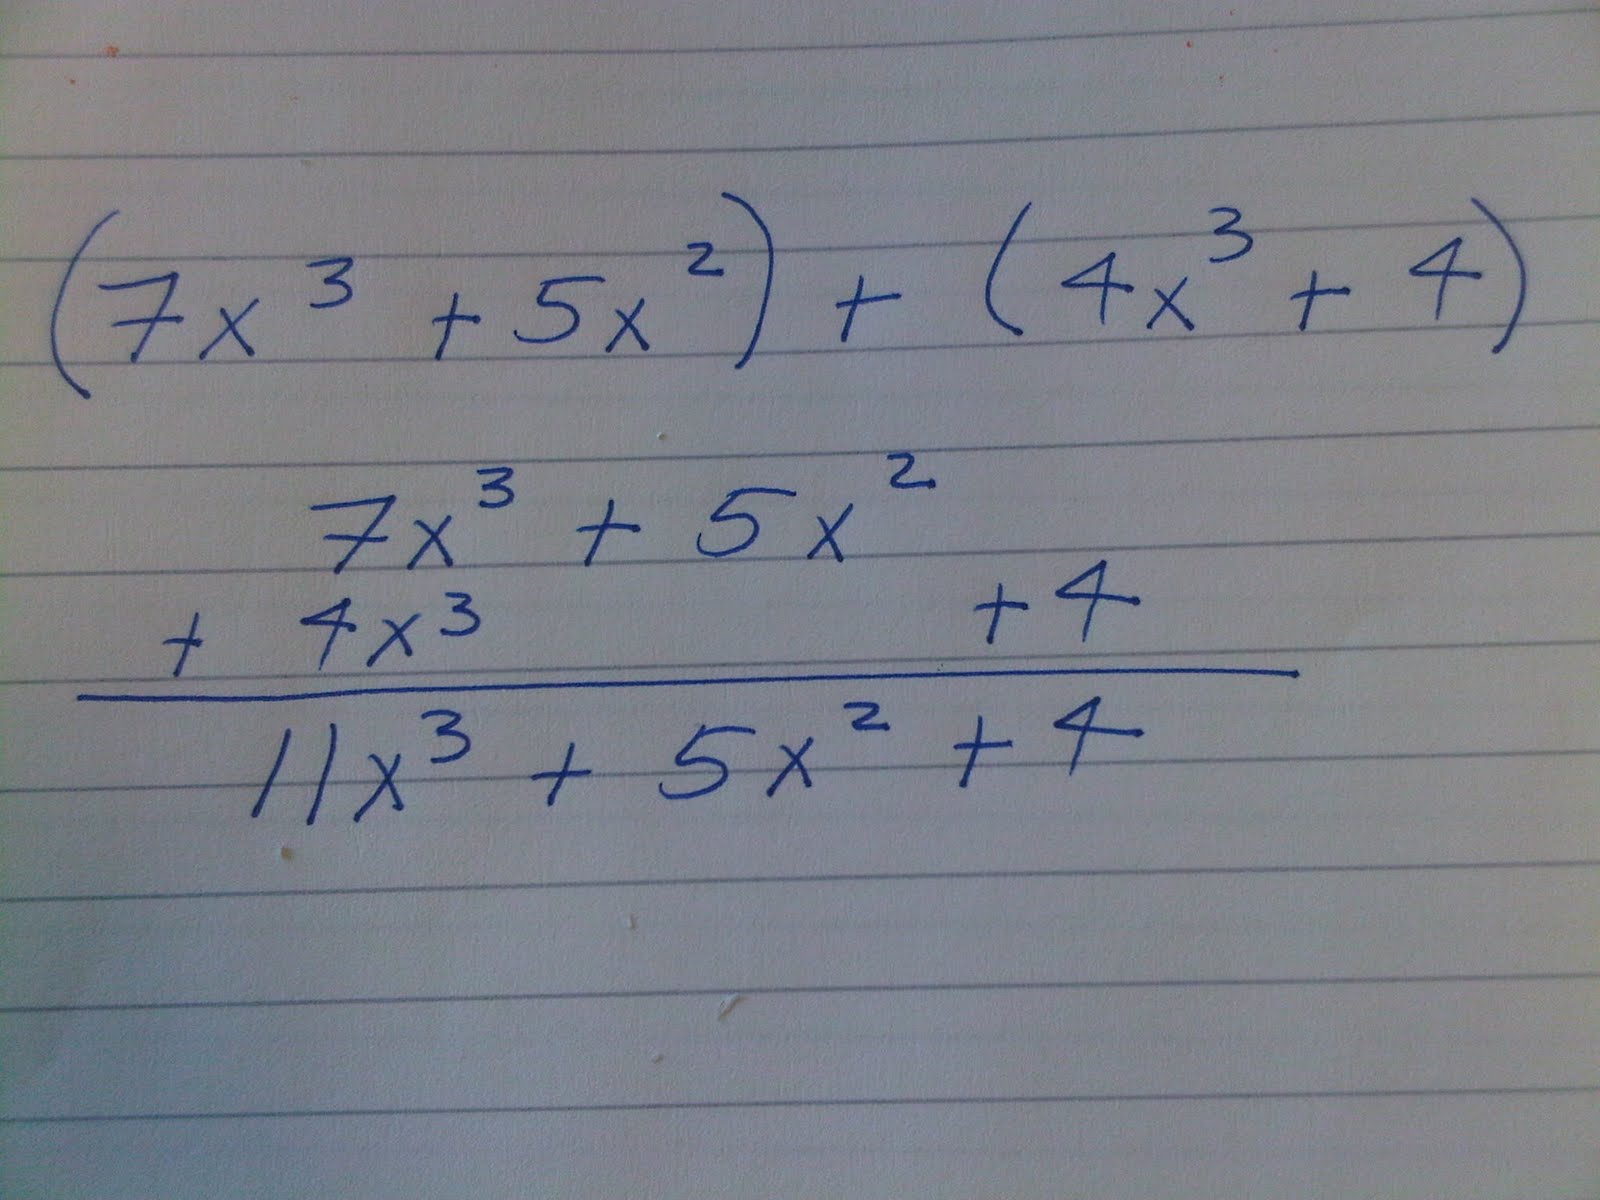 (7x³ + 5x²) + (4x³ + 4)
7x³ + 5x²
+ 4x³ + 4
11x³ + 5x² + 4